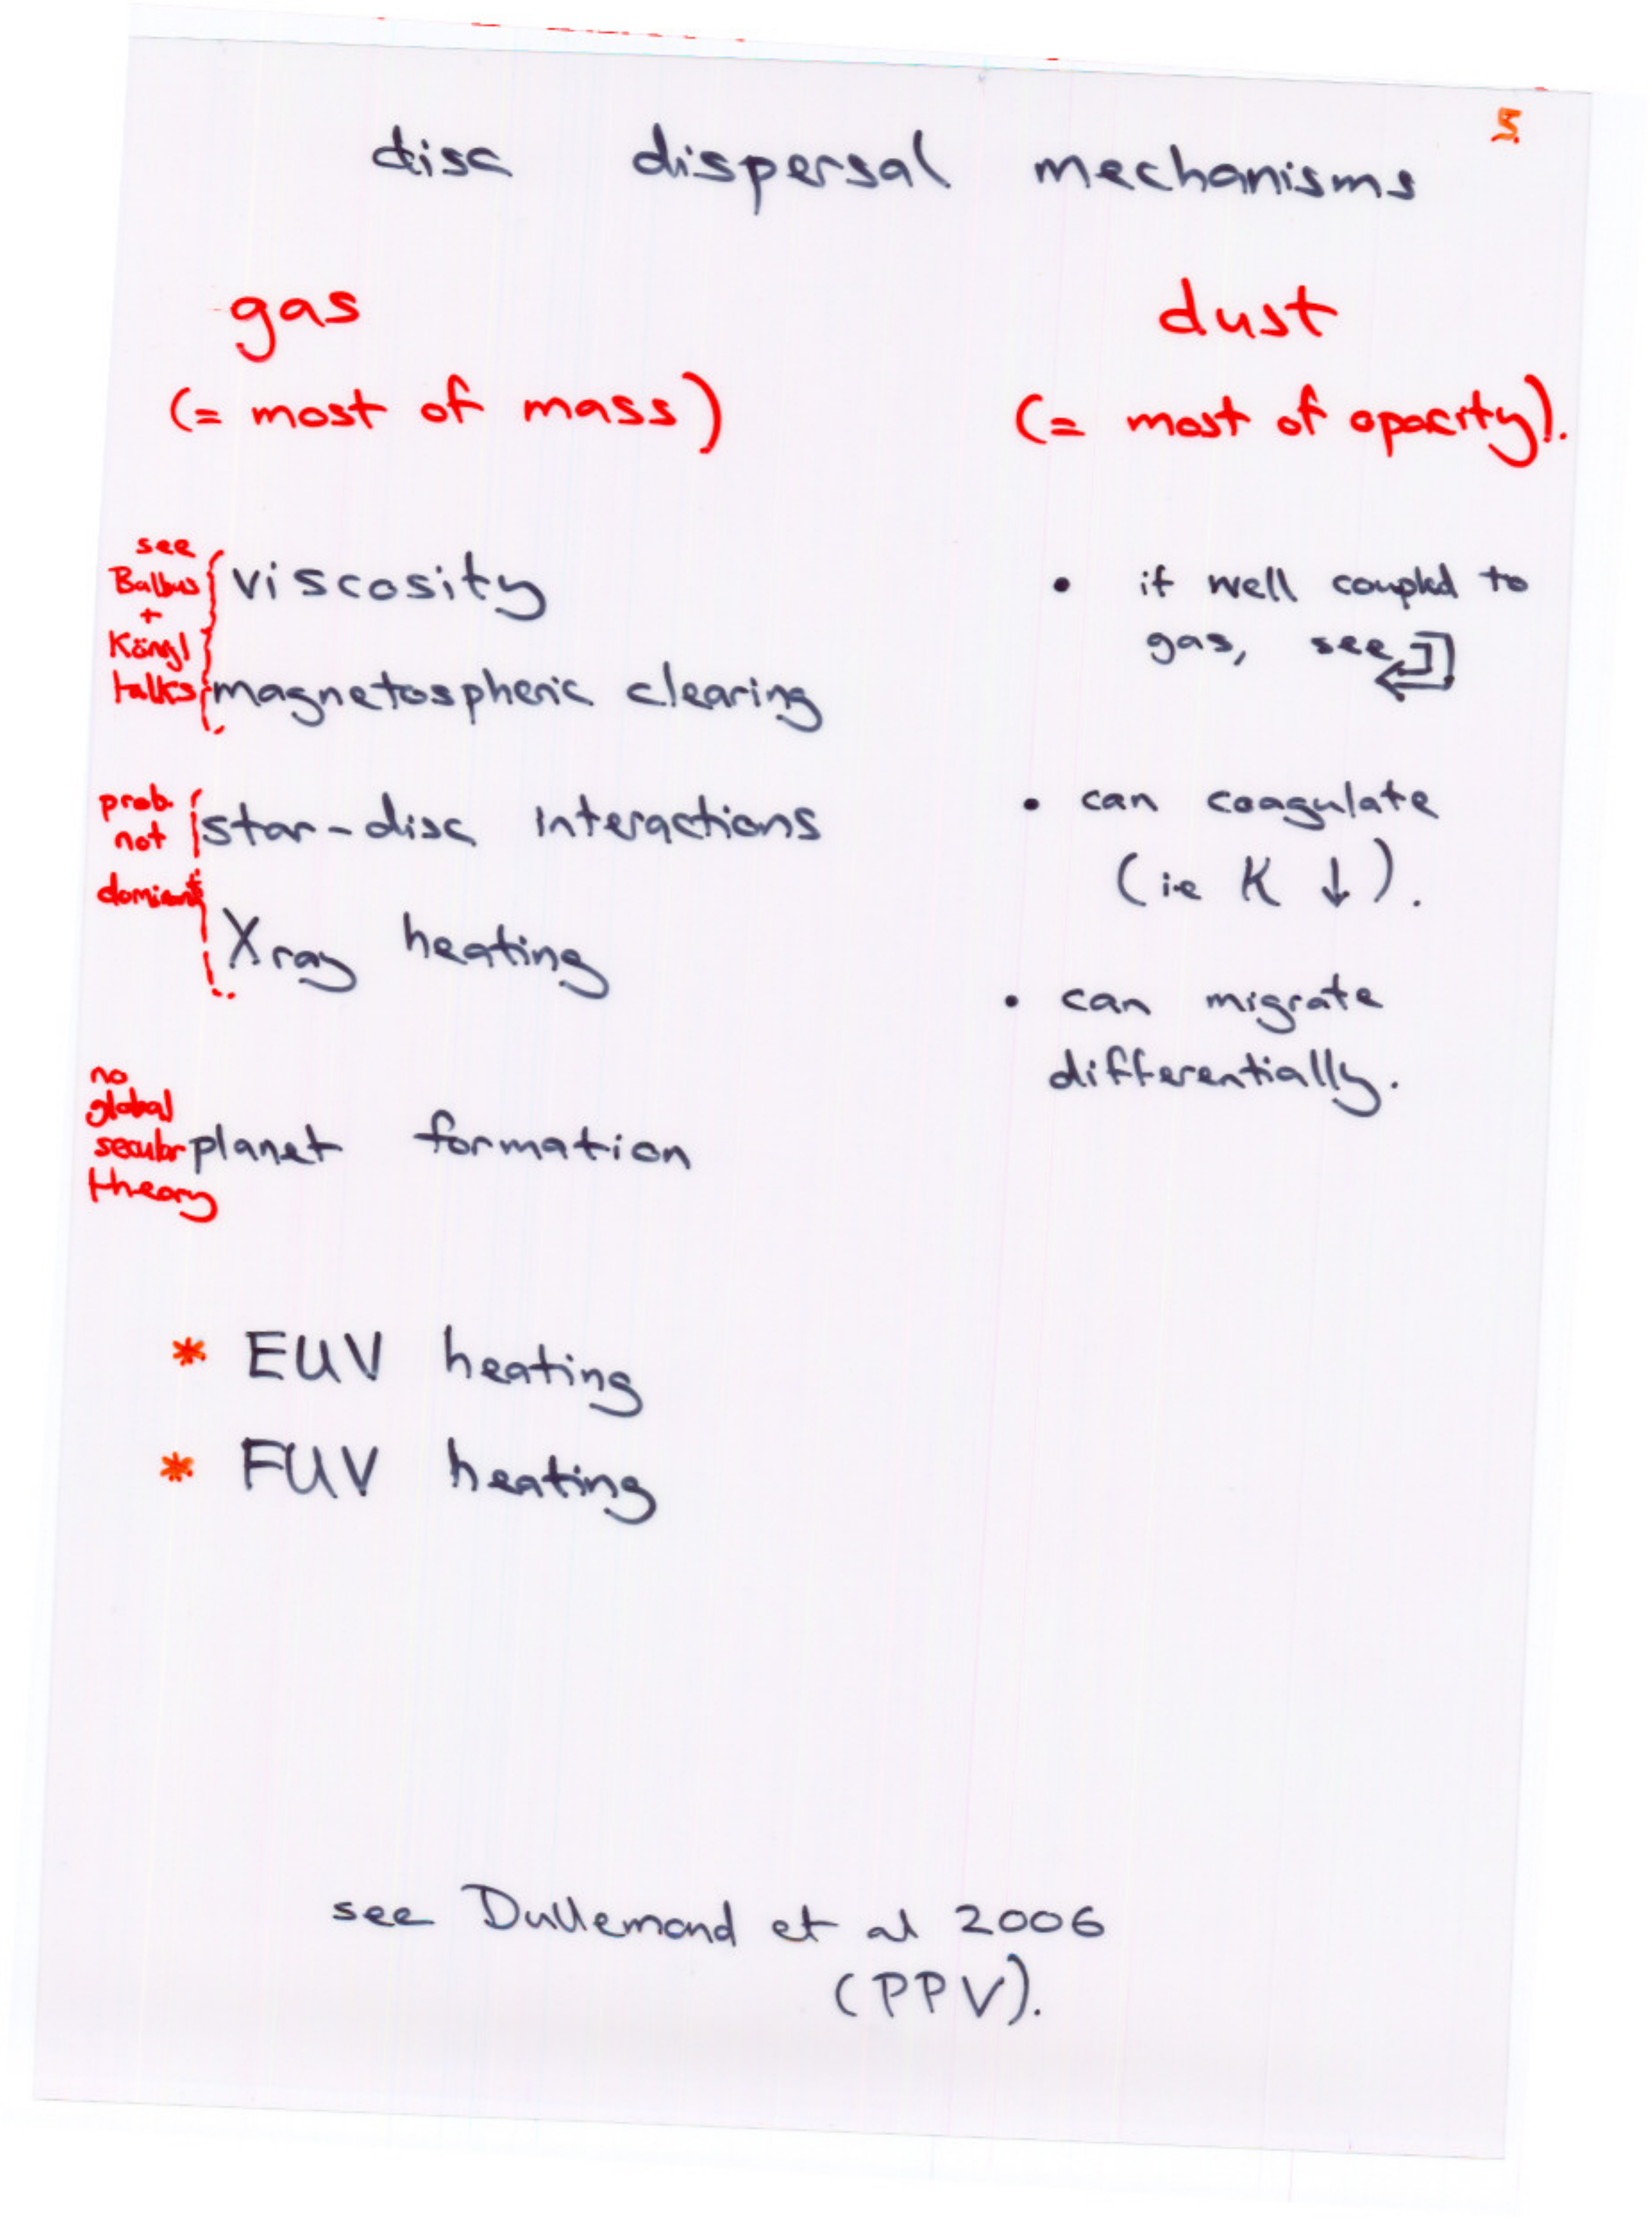 5
disc dispersal mechanisms
gas
(= most of mass)
dust
(= most of opacity).
see
Balbus
+
Königl
talks
viscosity
magnetospheric clearing
prob.
not
dominant
star-disc interactions
Xray heating
no
global
secular
theory
planet formation
* EUV heating
* FUV heating
• if well coupled to
gas, see
• can coagulate
(ie K ↓).
• can migrate
differentially.
see Dullemond et al 2006
(PPV).